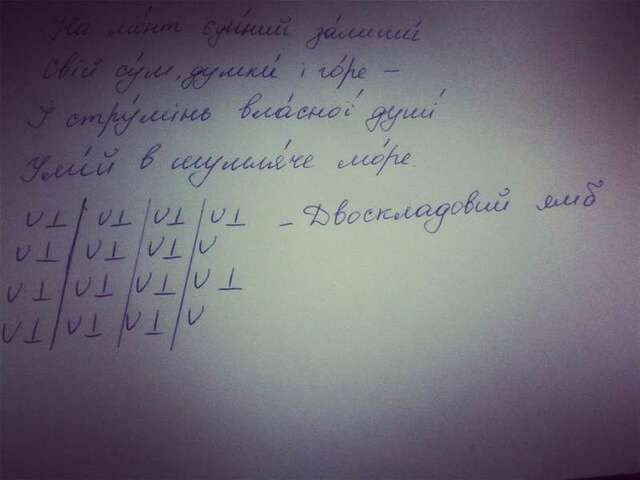 На ми́нт єди́ний за́лиши́
Свій су́м, думки́ і го́ре –
І стру́мінь вла́сної душі́
Ули́й в шумля́че мо́ре.
∪⊥/∪⊥/∪⊥/∪⊥ – Двоскладовий ямб
∪⊥/∪⊥/∪⊥/∪
∪⊥/∪⊥/∪⊥/∪⊥
∪⊥/∪⊥/∪⊥/∪